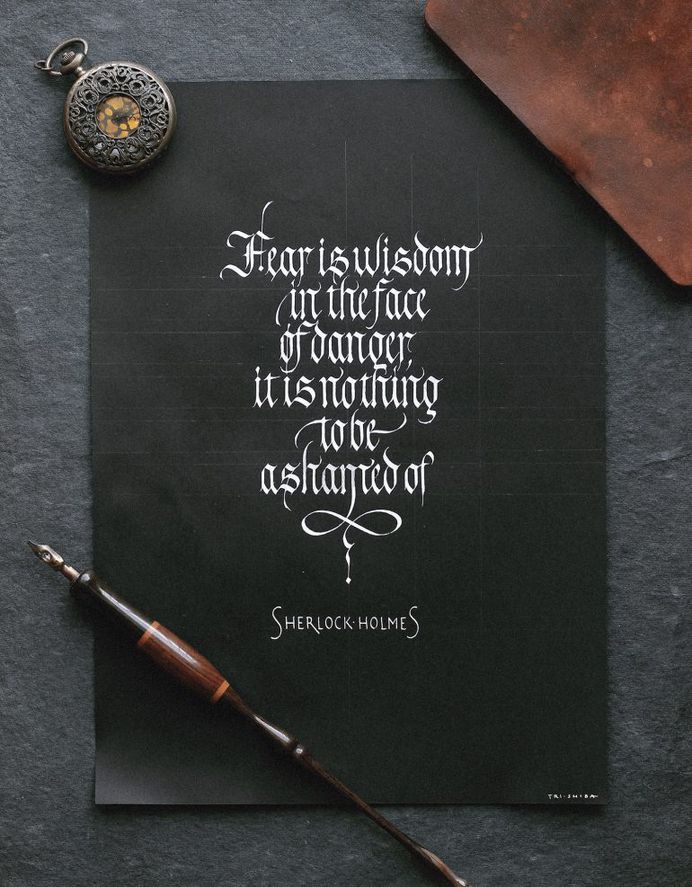 Fear is wisdom
in the face
of danger,
it is nothing
to be
ashamed of
SHERLOCK·HOLMES
TRI·SHIBA